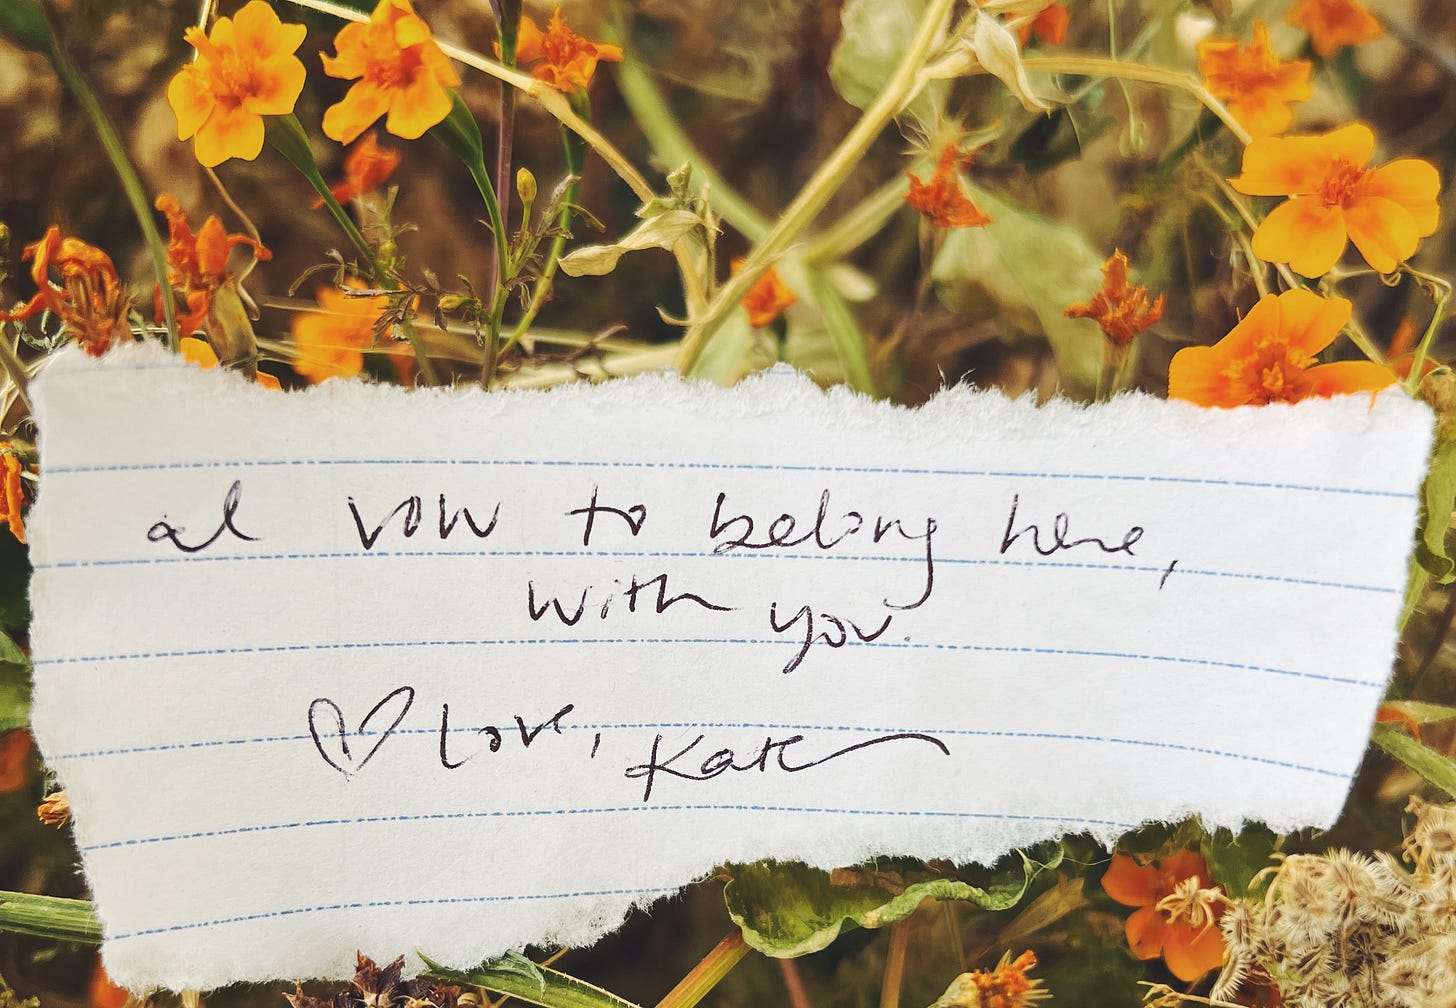 I vow to belong here,
with you.
♡ Love, Kate